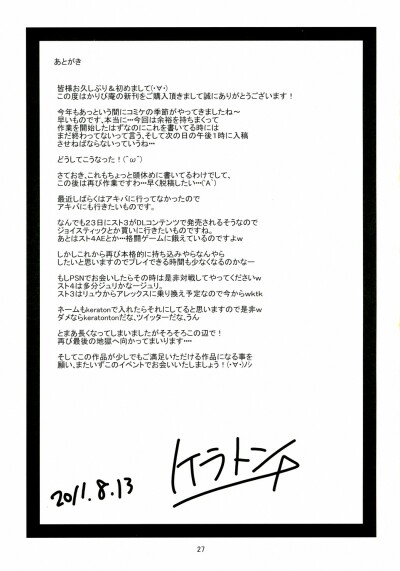 あとがき
皆様お久しぶり＆初めまして(･∀･)
この度はかりび庵の新刊をご購入頂きまして誠にありがとうございます！
今年もあっという間にコミケの季節がやってきましたね～
早いものです、本当に…今回は余裕を持ちまくって
作業を開始したはずなのにこれを書いてる時には
まだ終わってないって言う、そして次の日の午後1時に入稿
させねばならないっていうね…
どうしてこうなった！(´ω`)
さておき、これもちょっと頭休めに書いてるわけでして、
この後は再び作業ですわ…早く脱稿したい…('A`)
最近しばらくはアキバに行ってなかったので
アキバにも行きたいものです。
なんでも23日にスト3がDLコンテンツで発売されるそうなので
ジョイスティックとか買いに行きたいものですね。
あとはスト4AEとか…格闘ゲームに餓えているのですよw
しかしこれから再び本格的に持ち込みやらなんやら
したいと思いますのでプレイできる時間も少なくなるのかなー
もしPSNでお会いしたらその時は是非対戦してやってくださいw
スト4は多分ジュリかなージュリ。
スト3はリュウからアレックスに乗り換え予定なので今からwktk
ネームもkeratonで入れたらそれにしてると思いますので是非w
ダメならkeratontonだな、ツイッターだな、うん
とまあ長くなってしまいましたがそろそろこの辺で！
再び最後の地獄へ向かってまいります…･
そしてこの作品が少しでもご満足いただける作品になる事を
願い、またいずこのイベントでお会いいたしましょう！(･∀･)ノシ
ケラトン
2011.8.13
27